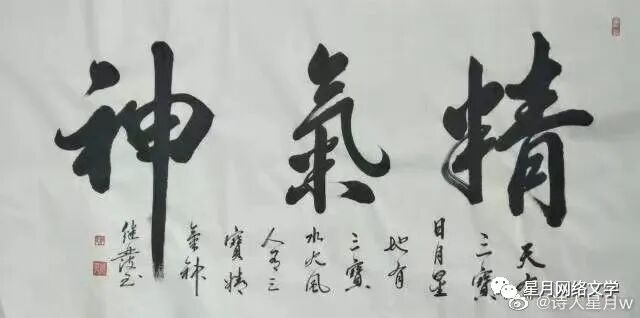 精氣神
天有
三寶
日月星
地有
三寶
水火風
人有三
寶精
氣神
继书
星月网络文学
@诗人星月w